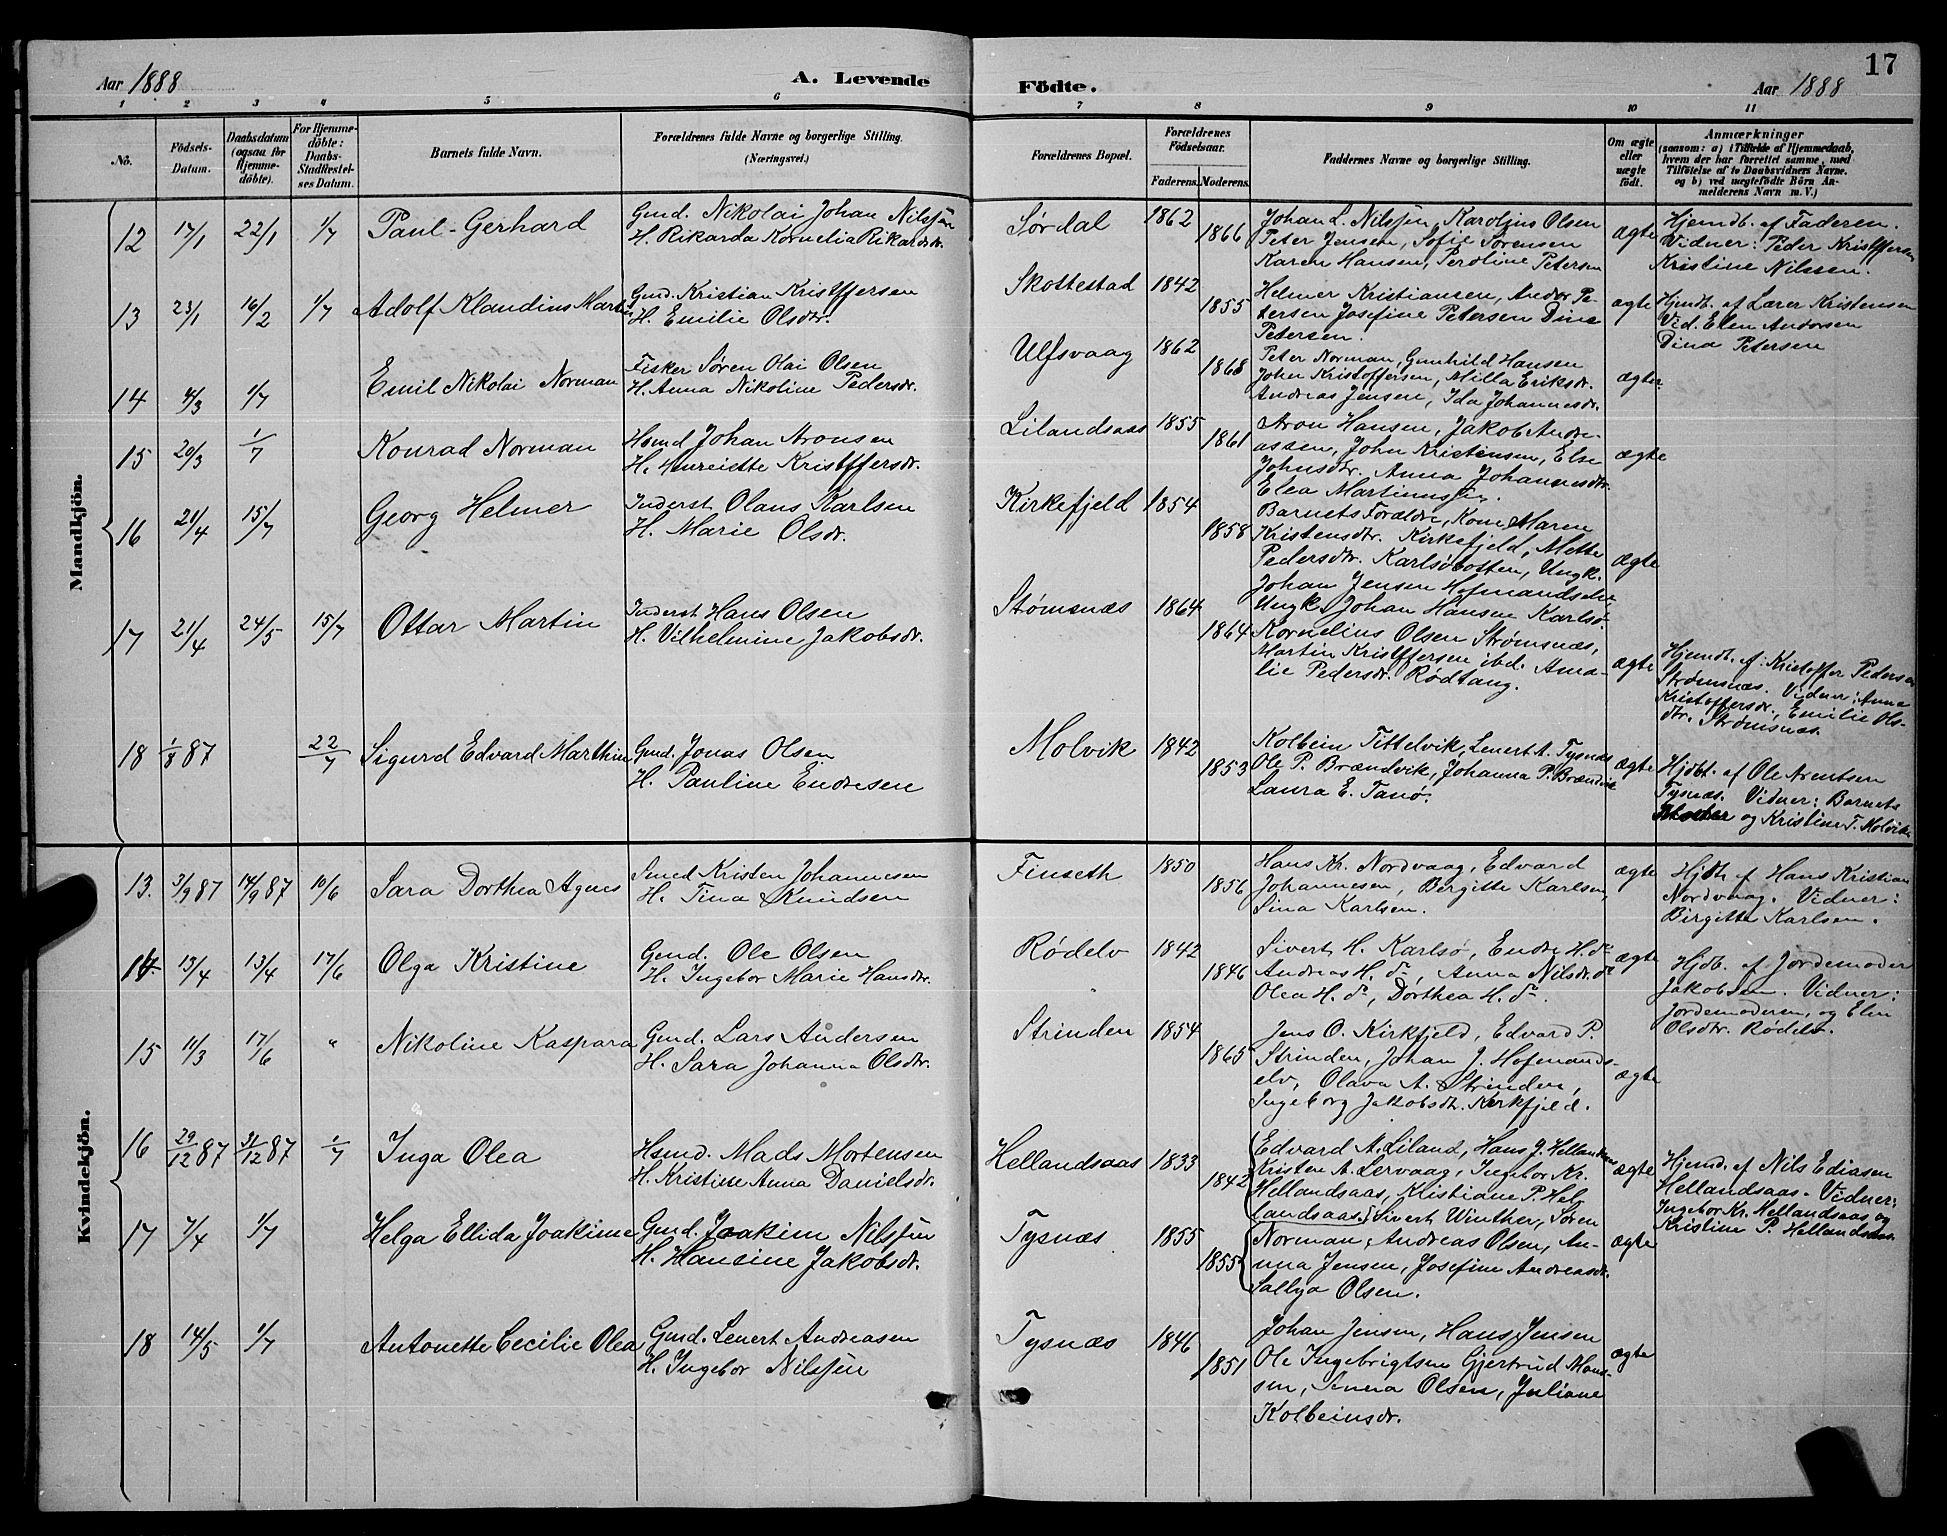 17
Aar 1888 A. Levende Födte. Aar 1888
1 2 3 4 5 6 7 8 9 10 11
No.
Födsels-Datum.
Daabsdatum (ogsaa for Hjemme-döbte).
For Hjemme-döbte: Daabs-Stadfæstel-ses Datum.
Barnets fulde Navn.
Forældrenes fulde Navne og borgerlige Stilling.
(Næringsvei.)
Forældrenes Bopæl.
Forældrenes Födselsaar.
Faderens. Moderens.
Faddernes Navne og borgerlige Stilling.
Om ægte eller uægte födt.
Anmærkninger
(saasom: a) i Tilfælde af Hjemmedaab,
hvem der har forrettet samme, med
Tilföielse af to Daabsvidners Navne.
og b) ved uægtefödte Börn An-
melderens Navn m. V.)
Mandkjön.
12 17/1 22/1 1/7 Paul-Gerhard
Gmd. Nikolai Johan Nilssen
H. Rikarda Kornelia Rikardsdr.
Sørdal 1862 1866
Johan L. Nilssen, Karolius Olsen
Peter Jensen, Sofie Sørensen
Karen Hansen, Peroline Petersen
ægte
Hjemdb. af Faderen.
Vidner: Peder Kristffersen
Kristine Nilssen.
13 23/1 16/2 1/7 Adolf Klaudius Martin
Gmd. Kristian Kristffersen
H. Emilie Olsdtr.
Skottestad 1842 1855
Helmer Kristiansen, Andor Pe-
tersen Josefine Petersen Dina
Petersen.
ægte
Hjmdt. af Lærer Kristensen
Vid. Elen Andorsen
Dina Petersen
14 4/3 1/7 Emil Nikolai Norman
Fisker Søren Olai Olsen
H. Anna Nikoline Pedersdr.
Ulfsvaag 1862 1868
Peter Norman, Gunhild Hansen
John Kristoffersen, Milla Eriksdr.
Andreas Jensen, Ida Johannesdr.
ægte
15 20/3 1/7 Konrad Norman
Hsmd Johan Aronsen
H. Henreidtte Kristffersdr.
Lilandsaas 1855 1861
Aron Hansen, Jakob Andre-
assen, John Kristensen, Else
Johnsdtr. Anna Johannesdtr.
Elea Martinussen.
ægte
16 21/4 15/7 Georg Helmer
Inderst Olaus Karlsen
H. Marie Olsdr.
Kirkefjeld 1854 1858
Barnets Forældre, Kone Maren
Kristensdtr. Kirkefjeld, Mette
Pedersdtr. Karlsøbotten, Ungk.
Johan Jensen Hofmandselv,
Ungk. Johan Hansen Karlsø.
ægte
17 21/4 24/5 15/7 Ottar Martin
Inderst Hans Olsen
H. Vilhelmine Jakobsdr.
Stømsnæs 1864 1864
Kornelius Olsen Strømsnæs,
Martin Kristffersen ibd. Ama-
lie Pedersdr. Rødtang.
ægte
Hjemdt. af Kristoffer Pedersen
Strømsnæs. Vidner: Anna
Kristoffersdr., Emilie Ols-
dtr. Strømsnæs.
18 1/8 87 22/7 Sigurd Edvard Marthin
Gmd. Jonas Olsen
H. Pauline Endresen
Molvik 1842 1853
Kolbein Tittelvik, Lenert A. Tysnæs
Ole P. Brændvik, Johanna P. Brændvik
Laura E. Tanø.
ægte
Hjdbt. af Ole Arentsen
Tysnæs. Vidner: Barnets
Moder og Kristine T. Molvik.
Kvindekjön.
13. 3/9 87 14/9 87 10/6 Sara Dorthea Agnes
Smed Kristen Johannesen
H. Tina Knudsen
Finseth 1850 1856
Hans Kr. Nordvaag, Edvard
Johannesen, Birgitte Karlsen,
Sina Karlsen.
ægte
Hjdt. af Hans Kristian
Nordvaag. Vidner:
Birgitte Karlsen.
14 13/4 13/4 17/6 Olga Kristine
Gmd. Ole Olsen
H. Ingebor Marie Hansdtr.
Rødelv 1842 1846
Sivert H. Karlsø, Endre H. do
Andreas H. do, Anna Nilsdr. do
Olea H. do, Dorthea H. do.
ægte
Hjdb. af Jordemoder
Jakobsen. Vidner:
Jordemoderen, og Elen
Olsdtr. Rødelv.
15 11/3 17/6 " Nikoline Kaspara
Gmd. Lars Andersen
H. Sara Johanna Olsdtr.
Strinden 1854 1865
Jens O. Kirkfjeld, Edvard P.
Strinden, Johan J. Hofmands-
elv, Olava A. Strinden,
Ingeborg Jakobsdtr. Kirkfjeld.
ægte
16 29/12 87 31/12 87 1/7 Inga Olea
Hsmd. Mads Mortensen
H. Kristine Anna Danielsdr.
Hellandsaas 1833 1842
Edvard A. Liland, Hans J. Hellandsaas
Kristen A. Lervaag, Ingebor Kr.
Hellandsaas, Kristiane P. Hel-
landsaas.
ægte
Hjemd. af Nils Ediasen
Hellandsaas. Vidner:
Ingebor Kr. Hellandsaas og
Kristine P. Hellandsaas.
17 7/4 1/7 Helga Ellida Joakime
Gmd. Joakim Nilssen
H. Hansine Jakobsdr.
Tysnæs 1855 1855
Sivert Winther, Søren
Norman, Andreas Olsen, An-
na Jensen, Josefine Andreasdr.
Sallya Olsen.
ægte
18 14/5 1/7 Antonette Cecilie Olea
Gmd. Lenert Andreasen
H. Ingebor Nilssen
Tysnæs 1846 1851
Johan Jensen, Hans Jensen
Ole Ingebrigtsen Gjertrud Mons-
sen, Olsen, Juliane
Kolbeinsdr.
ægte